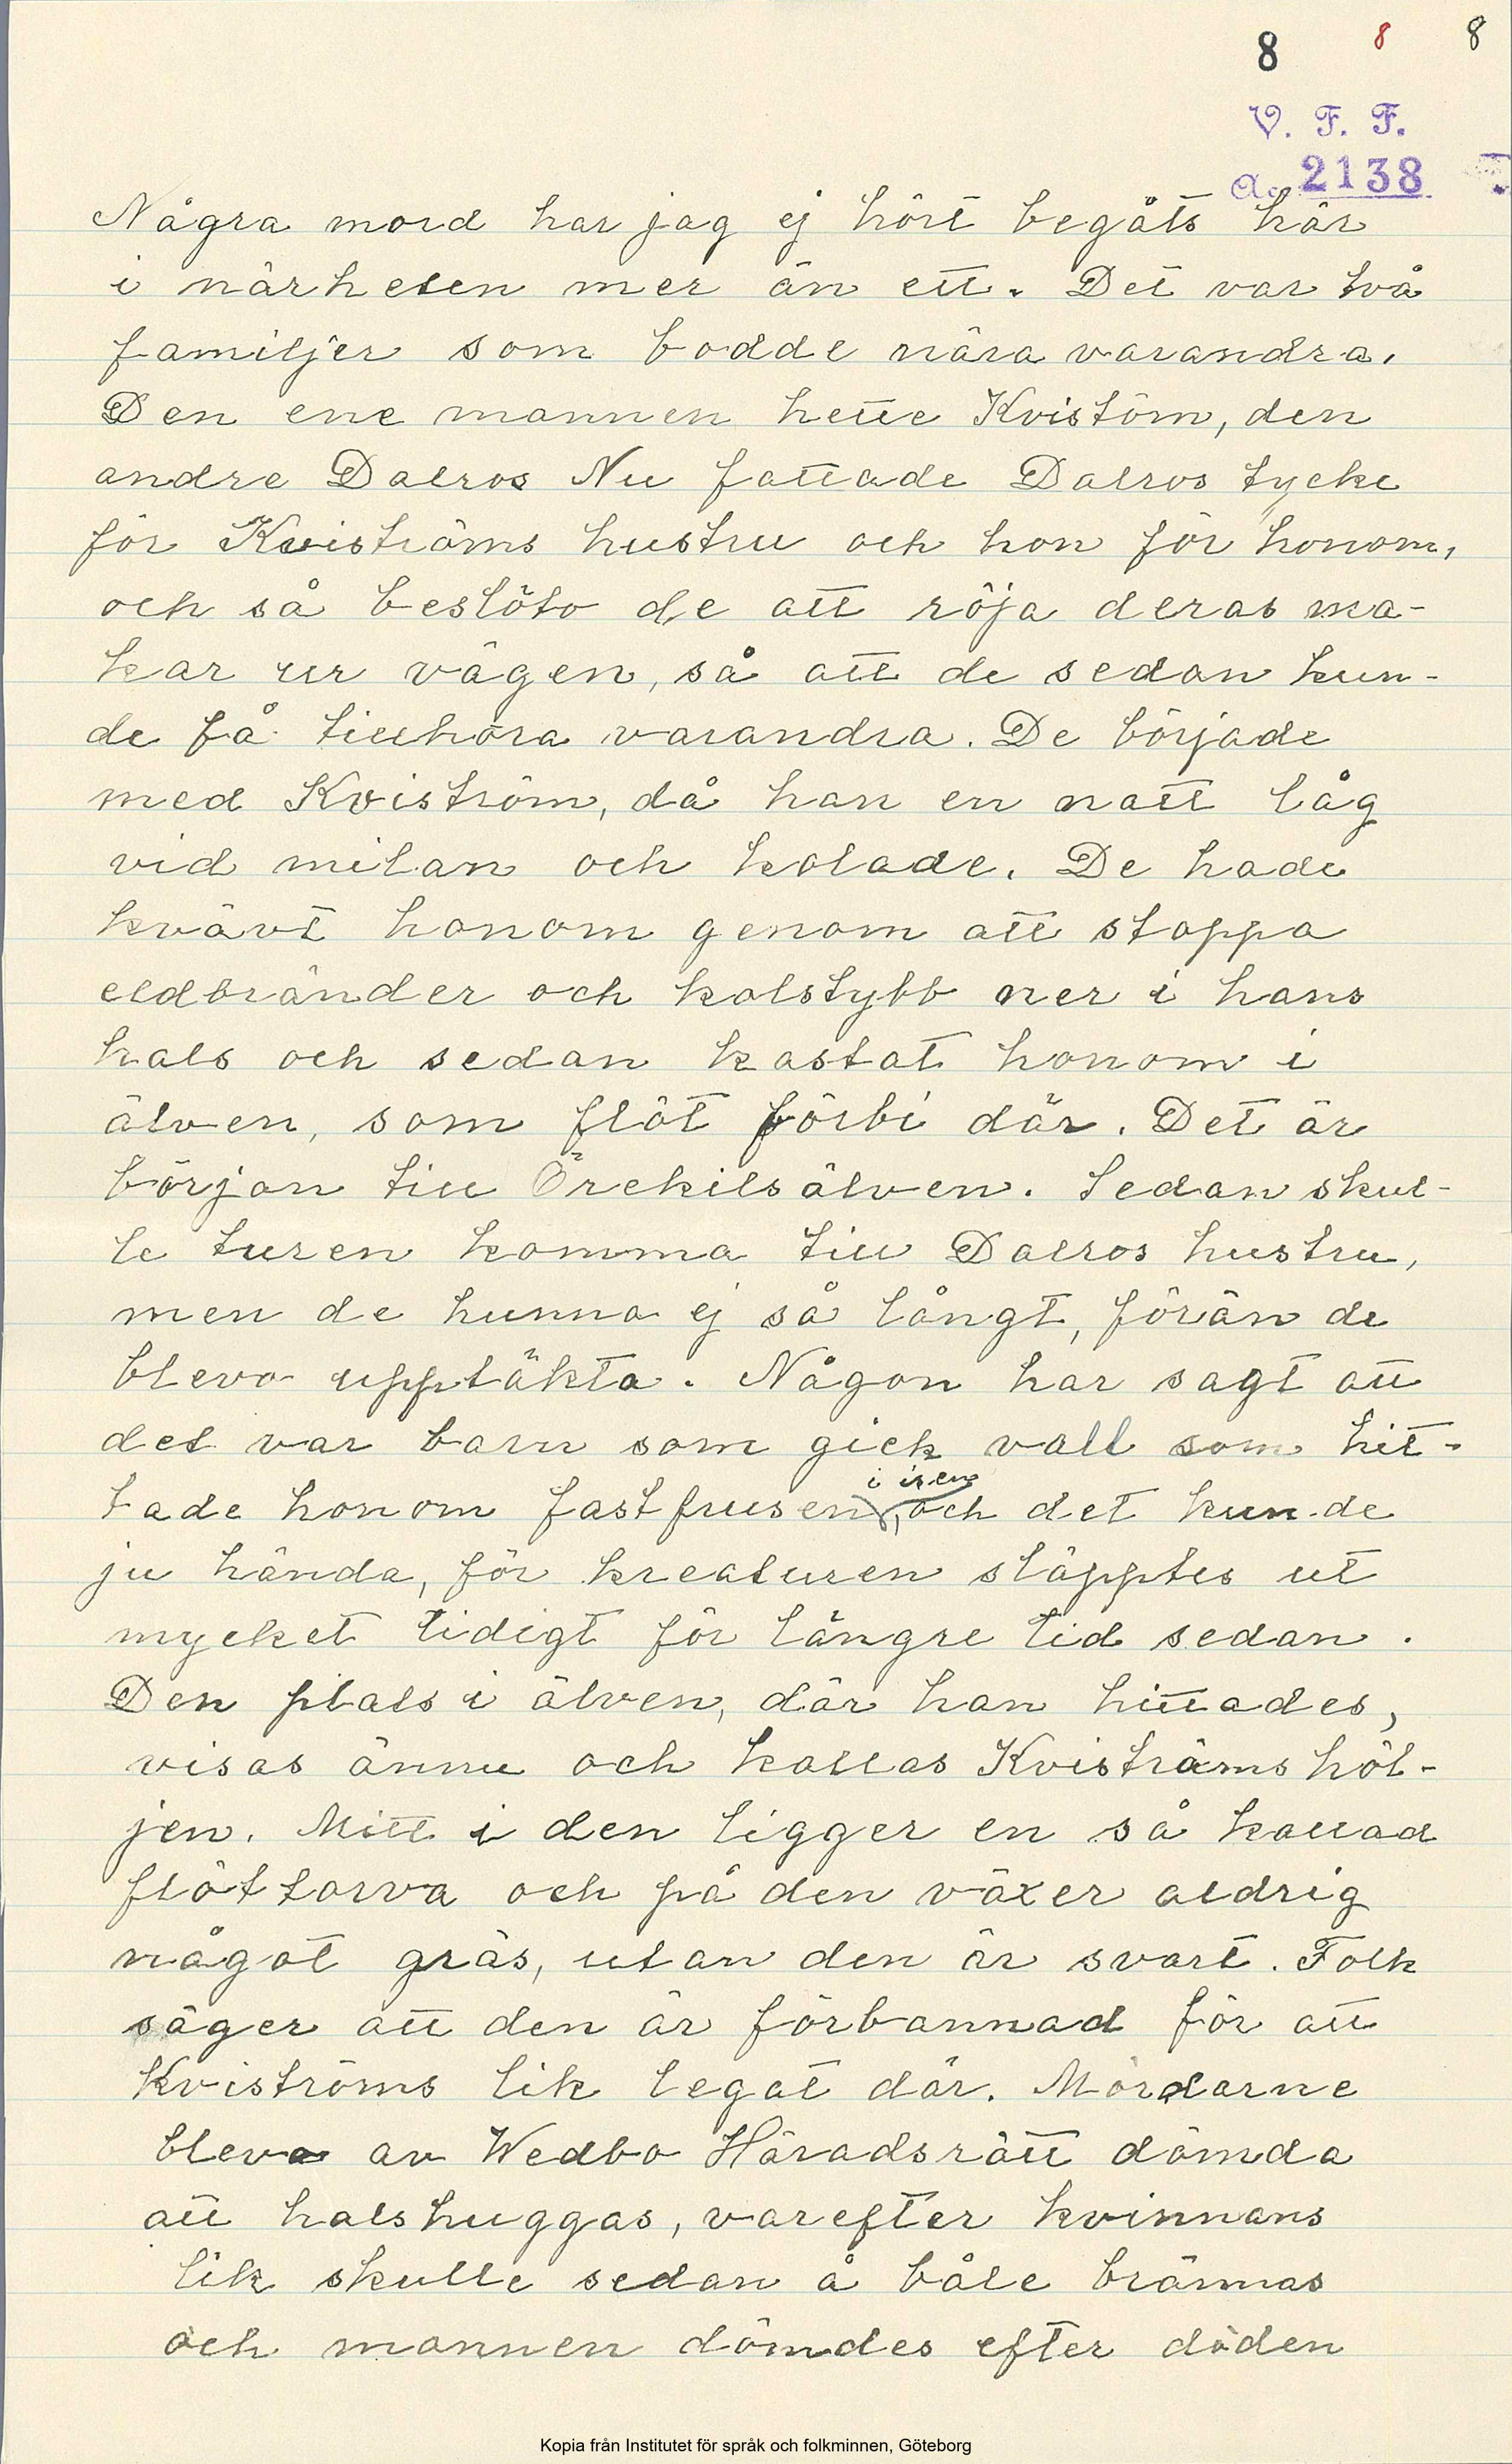 8 8 8
V. F. F.
Ac. 2138
Några mord har jag ej hört begåts här
i närheten mer än ett. Det var två
familjer som bodde nära varandra.
Den ene mannen hette Kviström, den
andre Dalros Nu fattade Dalros tycke
för Kviströms hustru och hon för honom,
och så beslöto de att röja deras ma-
kar ur vägen, så att de sedan kun-
de få tillhöra varandra. De började
med Kviström, då han en natt låg
vid milan och kolade. De hade
kvävt honom genom att stoppa
eldbränder och kolstybb ner i hans
hals och sedan kastat honom i
älven, som flöt förbi där. Det är
början till Örekilsälven. Sedan skul-
le turen komma till Dalros hustru,
men de hunno ej så långt, förän de
blevo upptäkta. Någon har sagt att
det var barn som gick vall som hit-
tade honom fastfrusen i isen, och det kunde
ju hända, för kreaturen släpptes ut
mycket tidigt för längre tid sedan.
Den plats i älven, där han hittades,
visas ännu och kallas Kviströms höl-
jen. Mitt i den ligger en så kallad
flöttorva och på den växer aldrig
något gräs, utan den är svart. Folk
säger att den är förbannad för att
Kviströms lik legat där. Mördarne
blevo av Wedbo Häradsrätt dömda
att halshuggas, varefter kvinnans
lik skulle sedan å båle brännas
och mannen dömdes efter döden
Kopia från Institutet för språk och folkminnen, Göteborg